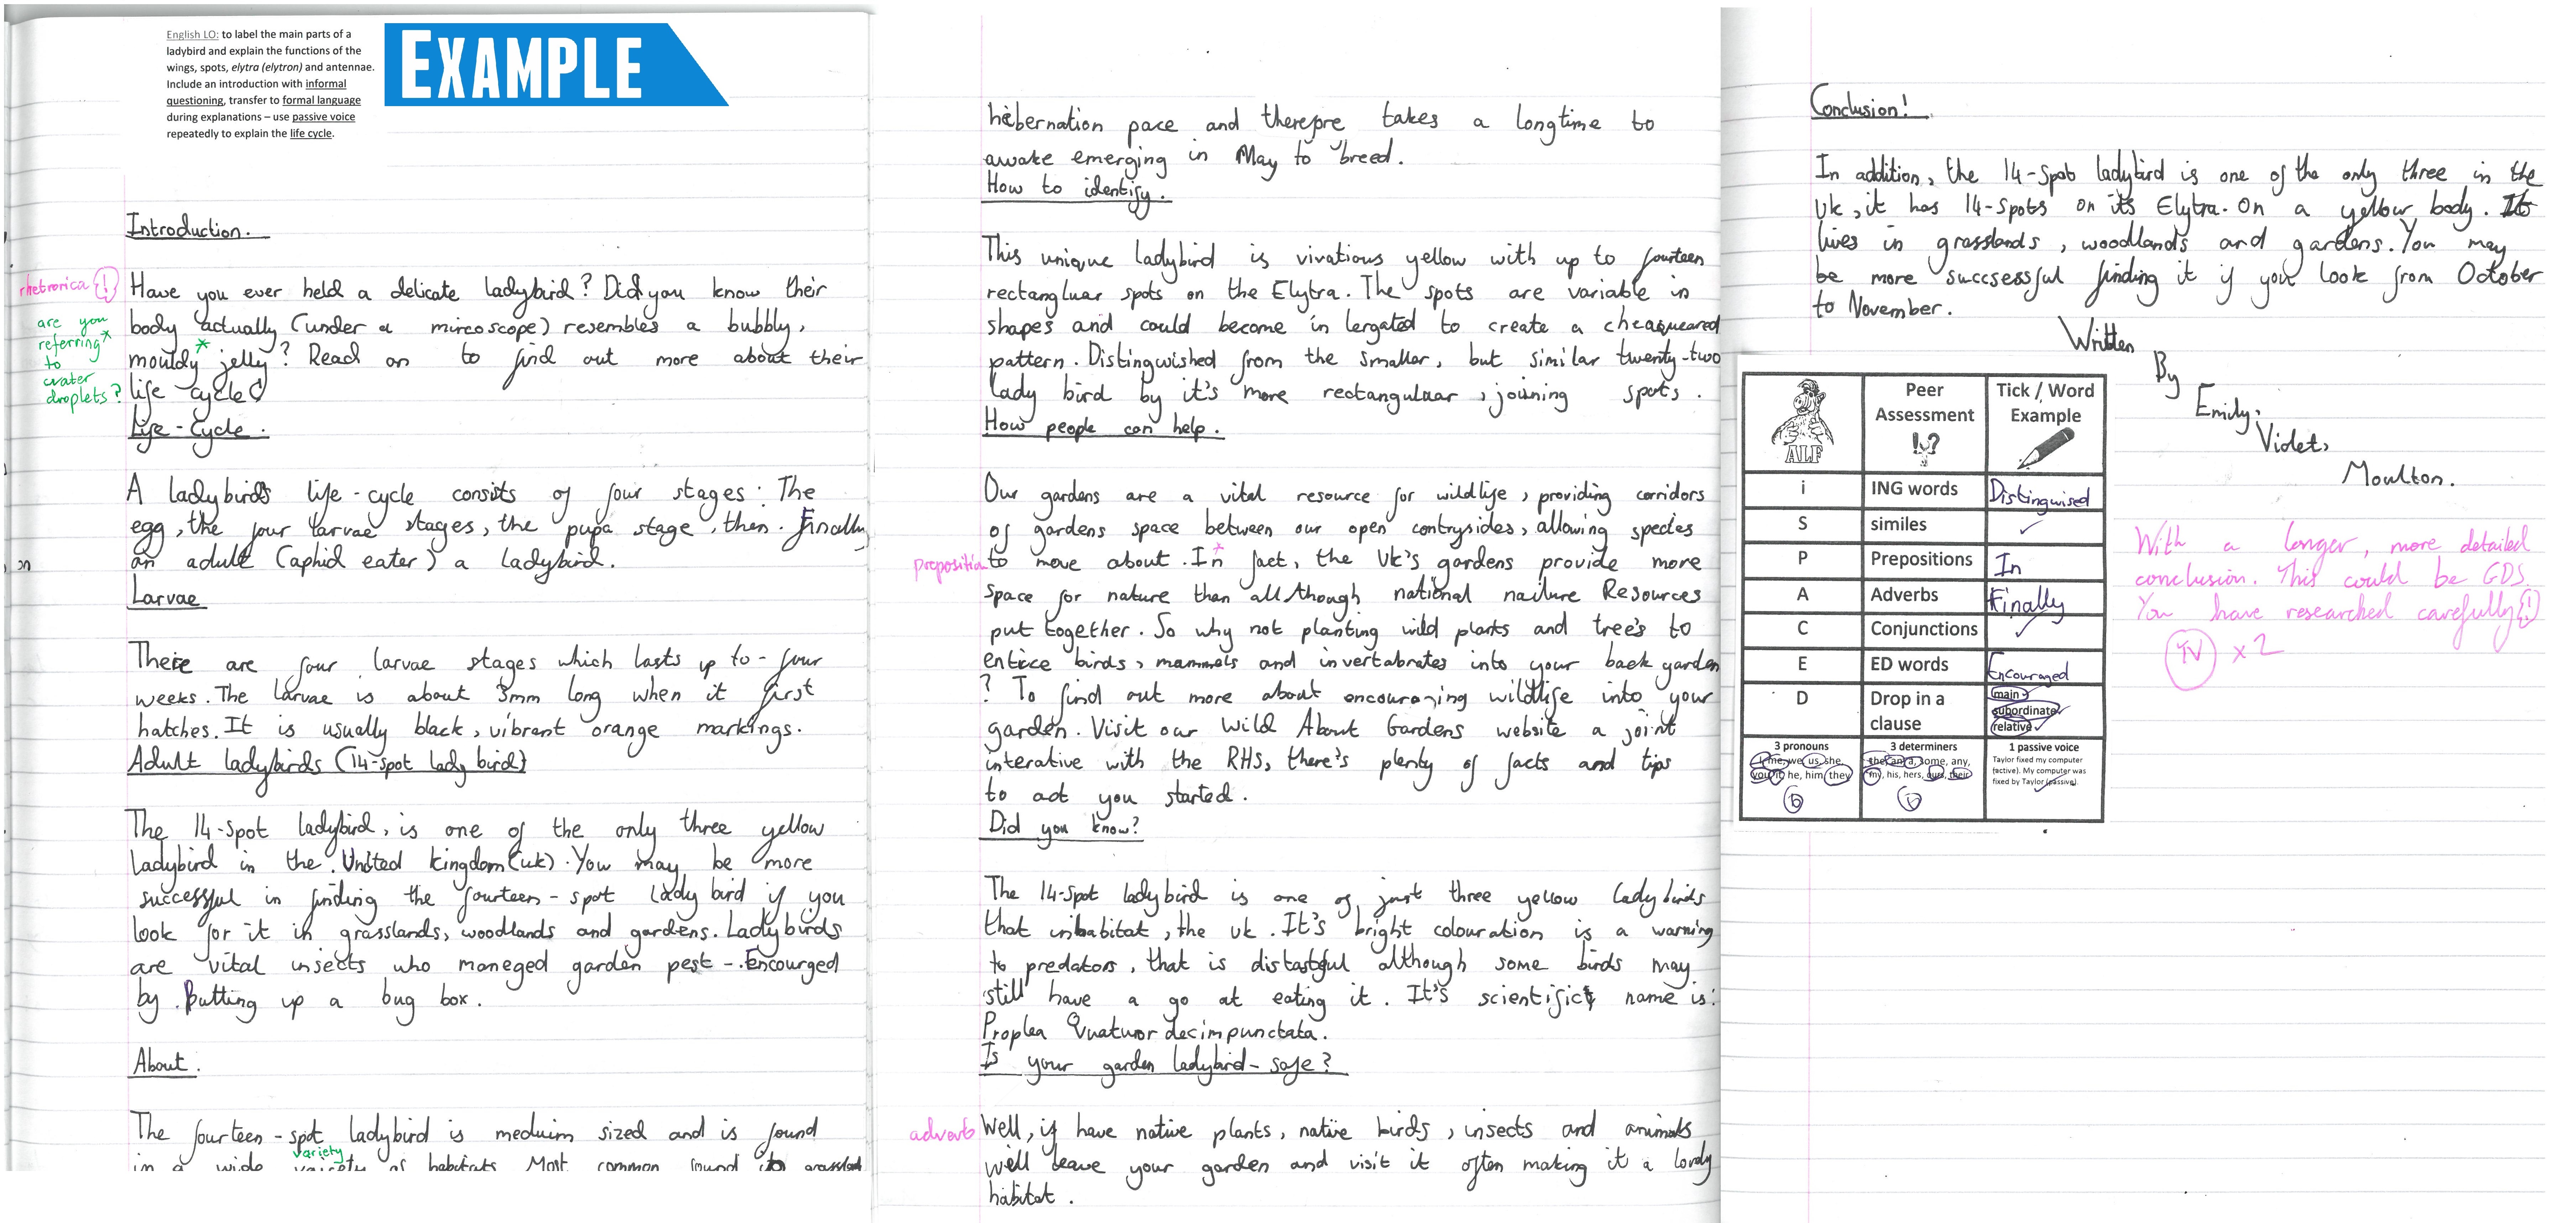 English LO: to label the main parts of a
ladybird and explain the functions of the
wings, spots, elytra (elytron) and antennae.
Include an introduction with informal
questioning, transfer to formal language
during explanations – use passive voice
repeatedly to explain the life cycle.
EXAMPLE
Introduction.
rhetrorica !
Have you ever held a delicate ladybird? Did you know their
body actually (under a mircoscope) resembles a bubbly,
mouldy* jelly? Read on to find out more about their
life cycle!
are you
referring*
to
water
droplets?
Life-Cycle.
A ladybirds life-cycle consists of four stages: The
egg, the four larvae stages, the pupa stage, then. Finally
an adult (aphid eater) a ladybird.
Larvae
There are four larvae stages which lasts up to-four
weeks. The larvae is about 3mm long when it first
hatches. It is usually black, vibrant orange markings.
Adult ladybirds (14-spot lady bird)
The 14-spot ladybird, is one of the only three yellow
ladybird in the United kingdom (uk). You may be more
successful in finding the fourteen-spot lady bird if you
look for it in grasslands, woodlands and gardens. Ladybirds
are vital insects who moneged garden pest-.Encourged
by Putting up a bug box.
About.
The fourteen-spot ladybird is meduim sized and is found
variety
in a wide of habitats Most common found
hibernation pace and therefore takes a longtime to
awake emerging in May to breed.
How to identify.
This unique ladybird is vivatious yellow with up to fourteen
rectangluar spots on the Elytra. The spots are variable in
shapes and could become in lergated to create a cheaqueared
pattern. Distingwished from the smaller, but similar twenty-two
lady bird by it's more rectangulaar, joining spots.
How people can help.
Our gardens are a vital resource for wildlife, providing corridors
of gardens space between our open contrysides, allowing species
preposition
to move about. In* fact, the Uk's gardens provide more
space for nature than all though national naiture Resources
put together. So why not planting wild plants and tree's to
entice birds, mammels and invertabrates into your back garden
? To find out more about encouraging wildlife into your
garden. Visit our Wild About Gardens website a joint
interative with the RHS, there's plenty of facts and tips
to act you started.
Did you know?
The 14-spot ladybird is one of just three yellow lady birds
that inhabitat, the uk. It's bright colouration is a warning
to predators, that is distasteful although some birds may
still have a go at eating it. It's scientific name is:
Proplea Quatuor decimpunctata.
Is your garden ladybird-safe?
adverb
Well, if have native plants, native birds, insects and animals
we'll leave your garden and visit it often making it a lovely
habitat.
Conclusion!
In addition, the 14-Spot ladybird is one of the only three in the
Uk, it has 14-spots on it's Elytra. On a yellow body. It
lives in grasslands, woodlands and gardens. You may
be more succsessful finding it if you look from October
to November.
Written
By
Emily,
Violet,
Moulton.
ALF
Peer Assessment
Tick / Word Example
i ING words Distingwised
S similes ✓
P Prepositions In
A Adverbs Finally
C Conjunctions ✓
E ED words Encouraged
D Drop in a clause main subordinate relative
3 pronouns
I, me, we us, she, you, it, he, him, they
6
3 determiners
the, an, a, some, any, my, his, hers, ours, their
6
1 passive voice
Taylor fixed my computer
(active). My computer was
fixed by Taylor (passive).
With a longer, more detailed
conclusion. This could be GDS.
You have researched carefully !
TV x2